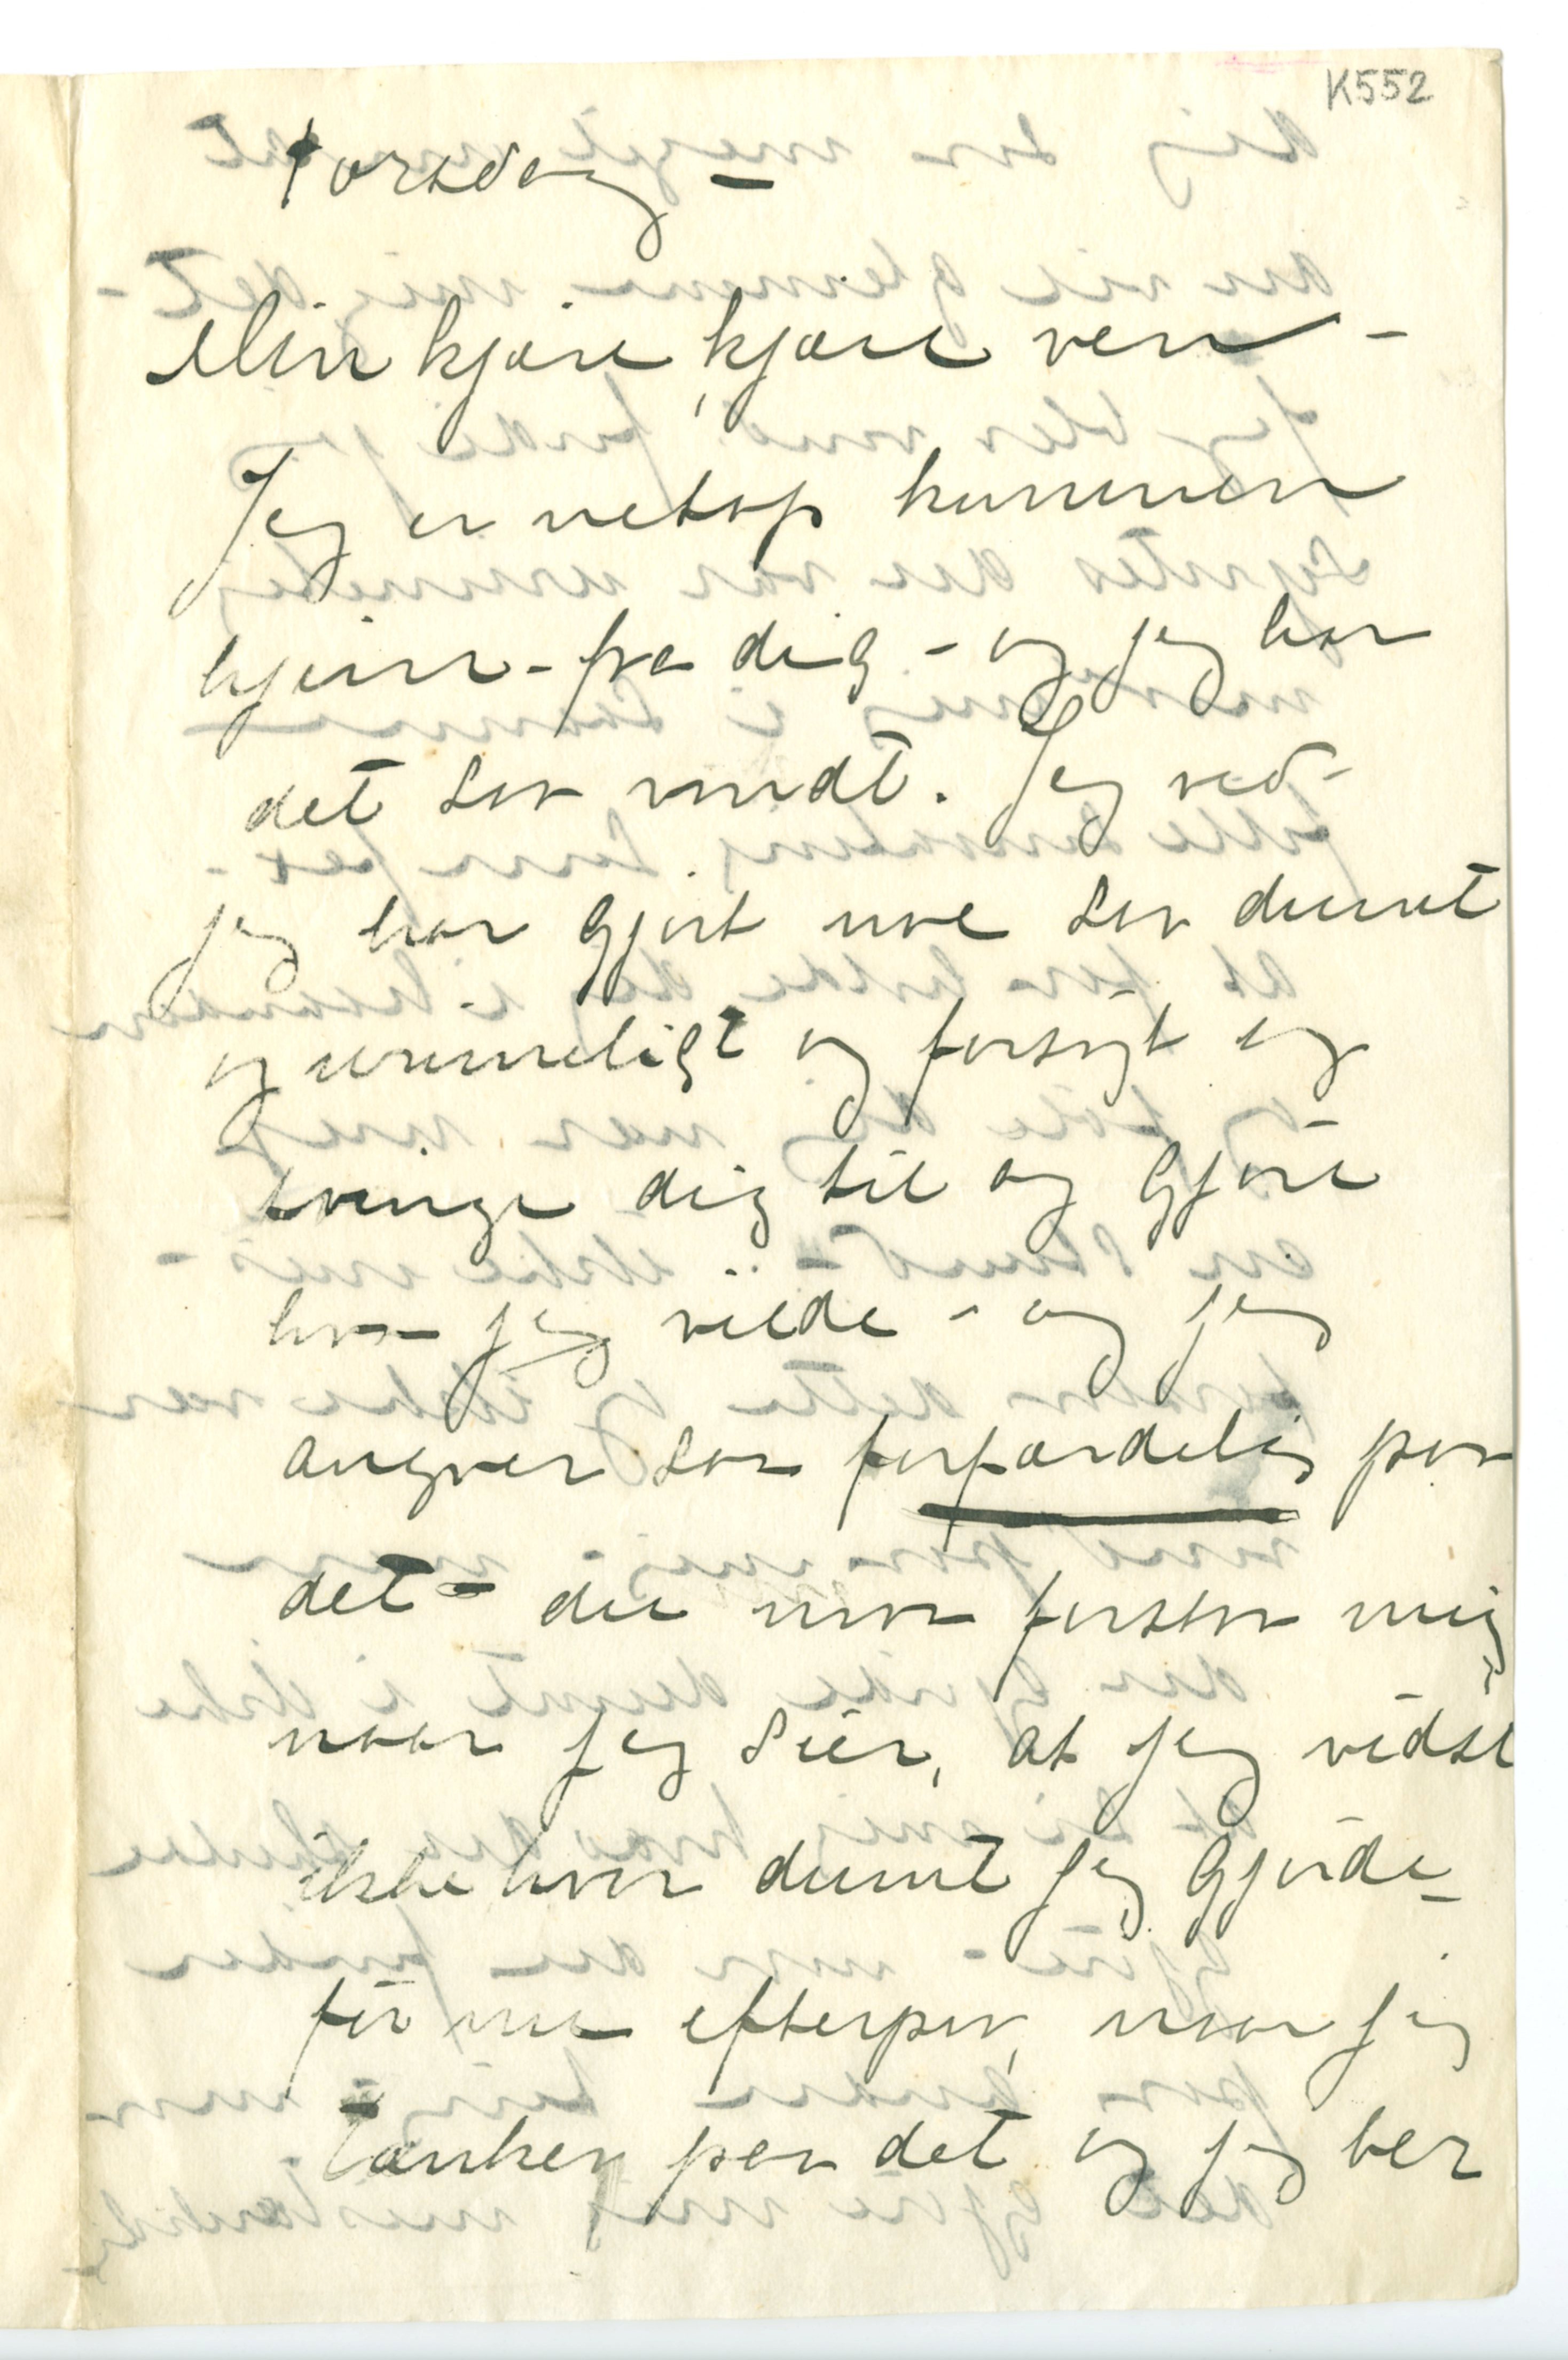 K552
Torsdag –
Min kjære, kjære ven –
Jeg er netop kommen
hjem – fra dig – og jeg har
det saa vondt. Jeg ved –
jeg har gjort noe saa dumt
og urimeligt og forsøgt og
tvinge dig til og gjøre
hva jeg vilde – og jeg
angrer saa forfærdelig paa
det – du maa forstaa mig,
naar jeg sier, at jeg vidste
ikke hvor dumt jeg gjorde –
før nu efterpaa, naar jeg
tænker paa det og jeg ber